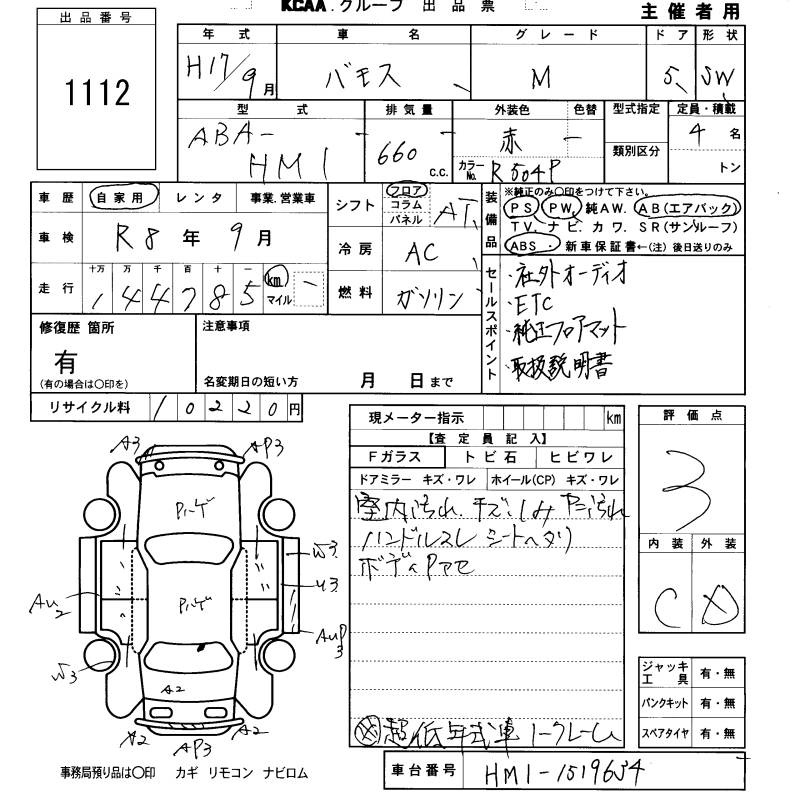 KCAA.グループ 出品票
主催者用
出品番号
1112
年式 車名 グレード ドア 形状
H17/9月 バモス M 5 SW
型式 排気量 外装色 色替 型式指定 定員・積載
ABA- HM1 660 c.c. 赤 - 類別区分 4名
カラーNo. R504P トン
車歴 自家用 レンタ 事業.営業車
車検 R8年9月
走行 十万 万 千 百 十 一 km マイル
144785
シフト フロア コラム パネル AT
冷房 AC
燃料 ガソリン
装備品
※純正のみ〇印をつけて下さい。
PS PW 純AW. AB(エアバック)
TV. ナビ. カワ. SR(サンルーフ)
ABS・新車保証書←(注)後日送りのみ
セールスポイント
・社外オーディオ
・ETC
・純正フロアマット
・取扱説明書
修復歴 箇所
有
(有の場合は〇印を)
注意事項
名変期日の短い方 月 日まで
リサイクル料 10220円
現メーター指示 km
【査定員記入】
Fガラス トビ石 ヒビワレ
ドアミラー キズ・ワレ ホイール(CP) キズ・ワレ
室内汚れ、キズ、しみ ヤニ汚れ
ハンドルスレ シートヘタリ
ボディ
超低年式車ノークレーム
評価点
3
内装 外装
C D
ジャッキ工具 有・無
パンクキット 有・無
スペアタイヤ 有・無
車台番号 HM1-1519654
A3 AP3
W3
U3
AU2
AUP3
W3
A2
A2 AP3 A2
事務局預り品は〇印 カギ リモコン ナビロム